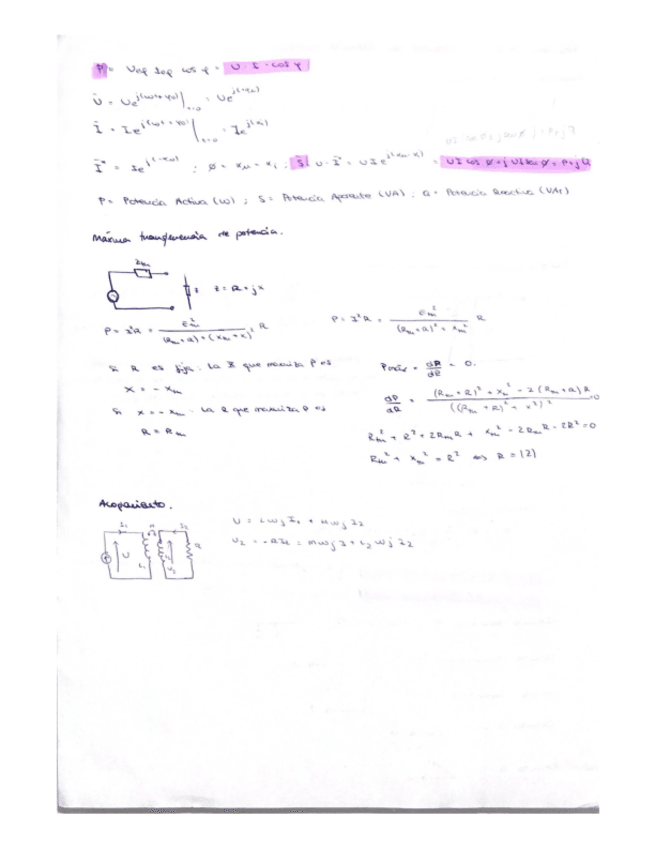 P = Uef Ief cos φ = U · I · cos φ
U = Ue^j(ωt+φ0)|t=0 = Ue^j(αu)
I = Ie^j(ωt+φ0)|t=0 = Ie^j(αi)
I* = Ie^j(-αi) ; ø = αu - αi ; S = U · I* = UIe^j(αu-αi) = UI cos ø + j UI sen ø = P + jQ
P = Potencia Activa (W) ; S = Potencia Aparente (VA) ; Q = Potencia Reactiva (VAr)
Máxima transferencia de potencia.
Zth
Z
Z = R + jX
P = I²R = e²th / (Rth + R) + (Xth + X)² R
P = I²R = e²th / (Rth + R)² + X²th R
Si R es fija: La X que maximiza P es
X = - Xth
Si X = - Xth. La R que maximiza P es
R = Rth
Pmáx = dP/dR = 0.
dP/dR = (Rth + R)² + Xth² - 2(Rth + R)R / ((Rth + R)² + X²)² = 0
Rth² + R² + 2RthR + Xth² - 2RthR - 2R² = 0
Rth² + Xth² = R² ⇔ R = |Z|
Acoplamiento.
I1 M I2
U L1 U2 R
U = LωjI1 + MωjI2
U2 = -RI2 = MωjI + L2ωjI2